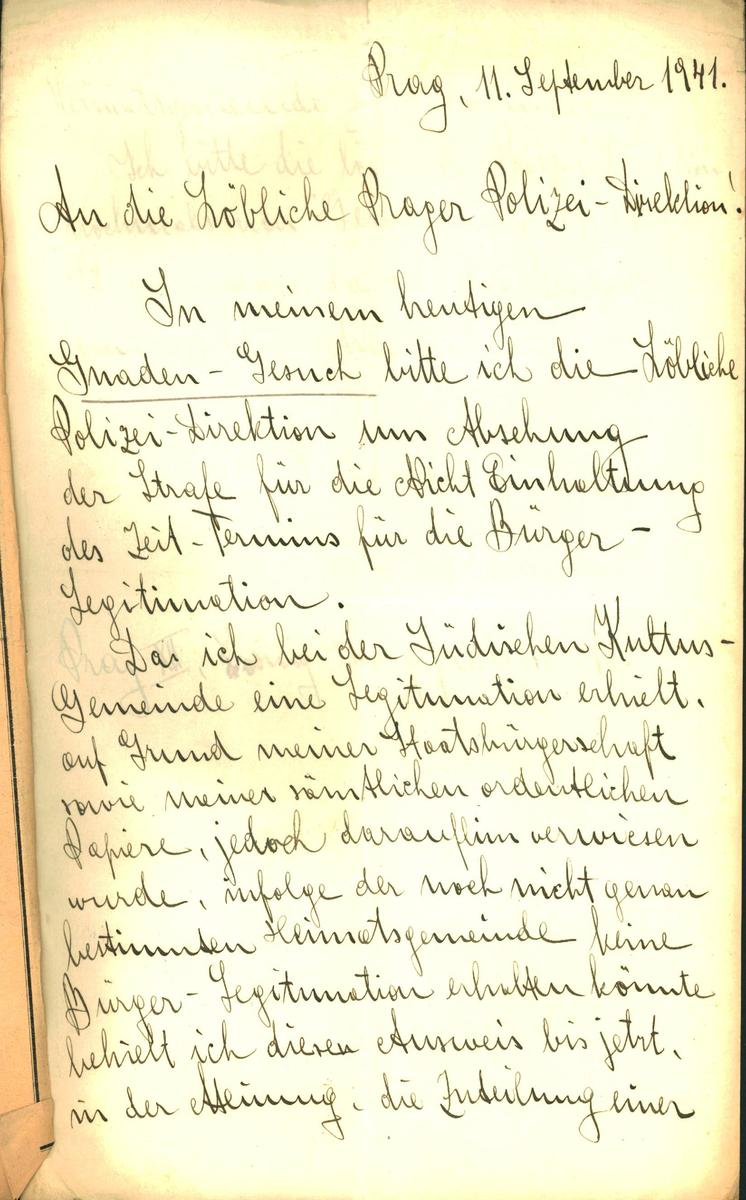 Prag, 11. September 1941.
An die Löbliche Prager Polizei-Direktion!
In meinem heutigen
Gnaden-Gesuch bitte ich die Löbliche
Polizei-Direktion um Absehung
der Strafe für die Nicht Einhaltung
des Zeit-Termins für die Bürger-
Legitimation.
Da ich bei der Jüdischen Kultus-
Gemeinde eine Legitimation erhielt,
auf Grund meiner Staatsbürgerschaft
sowie meiner sämtlichen ordentlichen
Papiere, jedoch daraufhin verwiesen
wurde, infolge der noch nicht genau
bestimmten Heimatsgemeinde keine
Bürger-Legitimation erhalten könnte
behielt ich diesen Ausweis bis jetzt,
in der Meinung, die Zuteilung einer